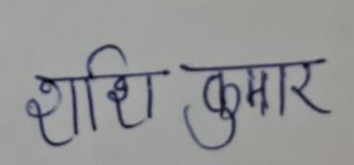 शशि कुमार